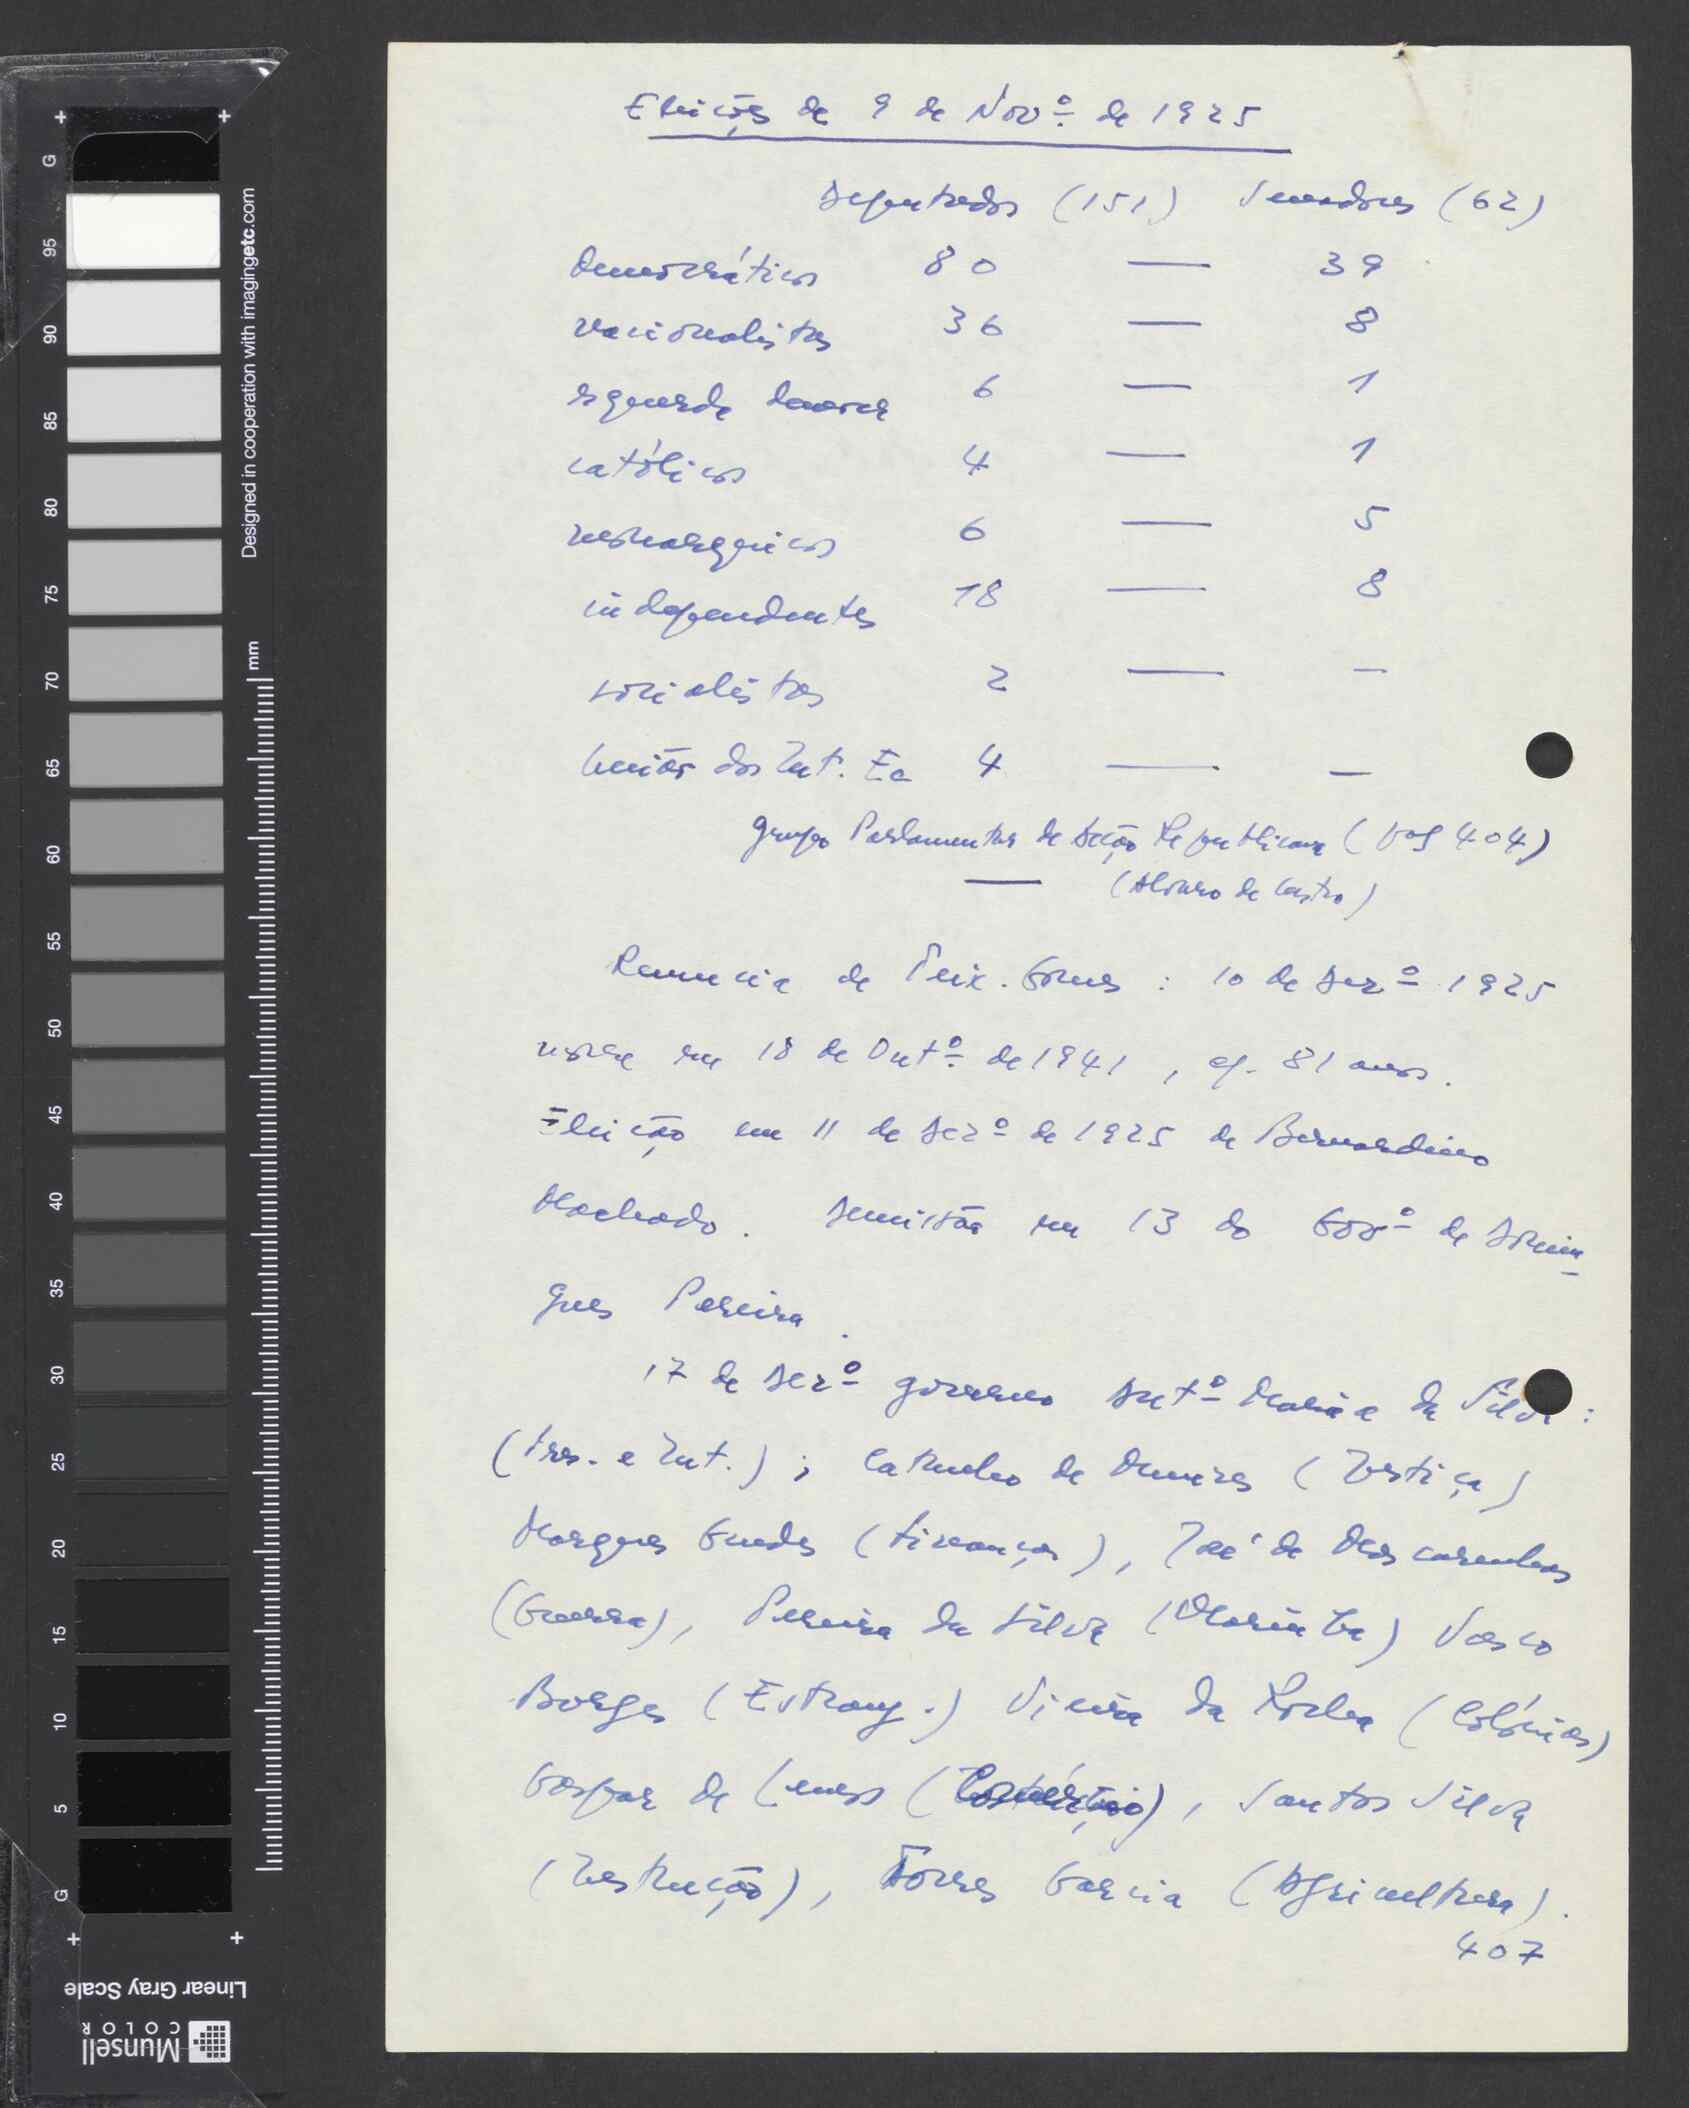 Eleições de 9 de Novº de 1925
Deputados (151) Senadores (62)
democráticos 80 — 39
nacionalistas 36 — 8
esquerda democr 6 — 1
católicos 4 — 1
monárquicos 6 — 5
independentes 18 — 8
socialistas 2 — —
União dos Int. Ec 4 — —
Grupo Parlamentar de Acção Republicana (pag 404)
— (Alvaro de Castro)
Renuncia de Teix. Gomes : 10 de Dezº 1925
morre em 18 de Outº de 1941, c/. 81 anos.
Eleição em 11 de Dezº de 1925 de Bernardino
Machado. Demissão em 13 do Govº de Domin-
gues Pereira.
17 de Dezº governo Antº Maria da Silva :
(Pres. e Int.) ; Catanho de Menezes (Justiça)
Marques Guedes (Finanças), José de Mascarenhas
(Guerra), Pereira da Silva (Marinha) Vasco
Borges (Estrang.) Vieira da Rocha (Colónias)
Gaspar de Lemos (Comércio), Santos Silva
(Instrução), Torres Garcia (Agricultura).
407
Designed in cooperation with imagingetc.com
mm
G 95 90 85 80 75 70 65 60 55 50 45 40 35 30 25 20 15 10 5 G
Linear Gray Scale
Munsell
COLOR